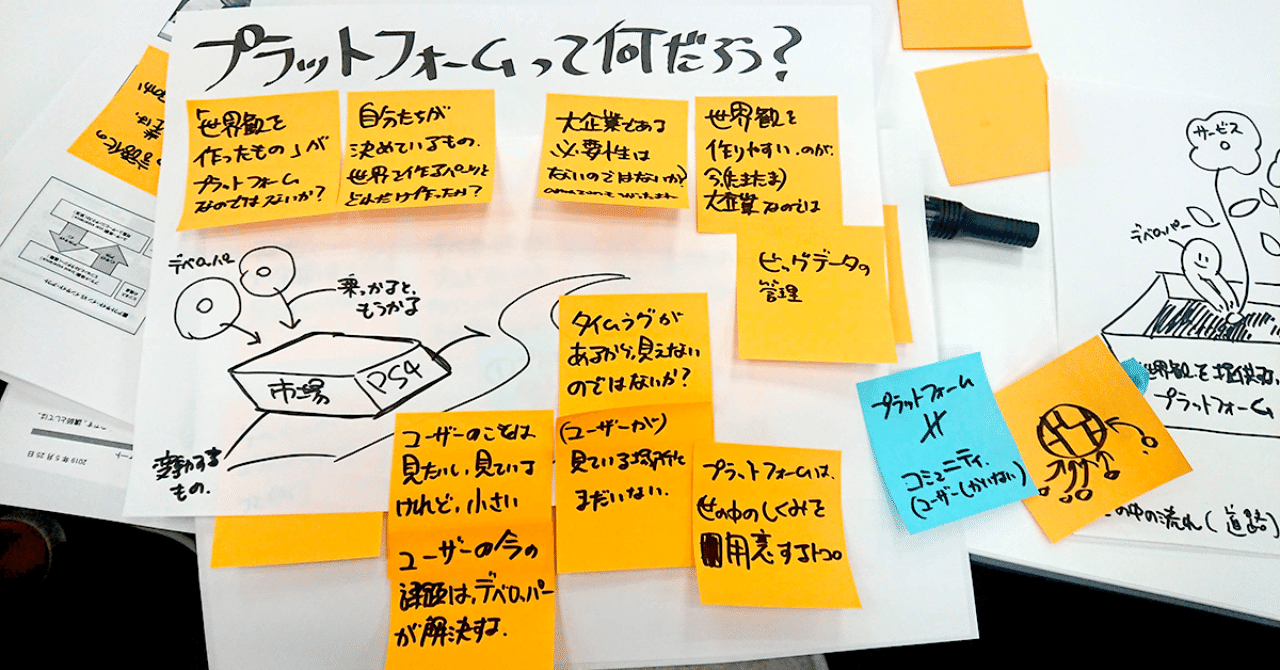 プラットフォームって何だろう?
「世界観を
作ったもの」が
プラットフォーム
なのではないか?
自分たちが
決めているもの.
大企業である
必要性は
ないのではないか?
世界観を
作りやすいのが
今(たまたま)
大企業なのでは
ビッグデータの
管理
デベロッパ
乗っかると、
もうかる
市場
PS4
変動する
もの.
タイムラグが
あるから,見えない
のではないか?
(ユーザーが)
見ている場所に
まだいない.
ユーザーのことは
見たいし,見ている
けれど,小さい
ユーザーの今の
課題は,デベロッパー
が解決する.
プラットフォームは、
世の中のしくみを
用意するトコロ
プラットフォーム
コミュニティ.
(ユーザーしかいない)
サービス
デベロッパー
世界観を提供する,
プラットフォーム
の中の流れ(道路)
2019年5月25日